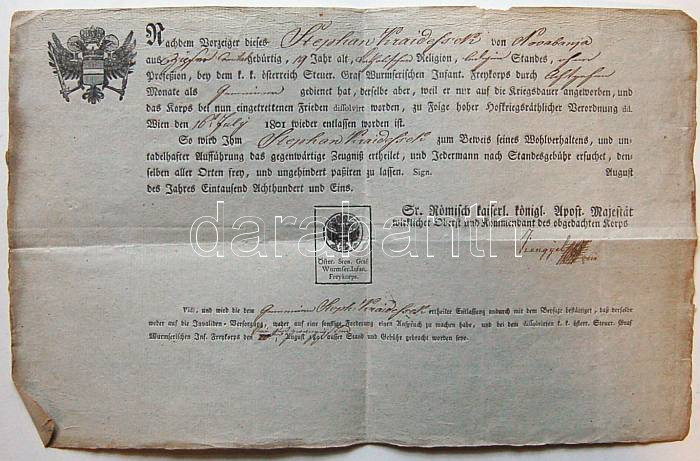 Nachdem Vorzeiger dieses Stephan Kraidessek von Novabanja
aus gebürtig, 19 Jahr alt, Religion, ledigen Standes, ohne
Profession, bey dem k. k. österreich Steuer. Graf Wurmserischen Infant. Freykorps durch Achtzehen
Monate als Gemeiner gedienet hat, derselbe aber, weil er nur auf die Kriegsdauer angeworben, und
das Korps bei nun eingetrettenen Frieden dissolvirt worden, zu Folge hoher Hofkriegsräthlicher Verordnung dd.
Wien den 16t July 1801 wieder entlassen worden ist.
So wird Ihm Stephan Kraidessek zum Beweis seines Wohlverhaltens, und un-
tadelhafter Aufführung das gegenwärtige Zeugniß ertheilet, und Jedermann nach Standesgebühr ersuchet, den-
selben aller Orten frey, und ungehindert paßiren zu lassen. Sign. August
des Jahres Eintausend Achthundert und Eins.
Sr. Römisch kaiserl. königl. Apost. Majestät
wirklicher Oberst und Kommendant des obgedachten Korps
Öster. Graf
Wurmser. Infan.
Freykorps.
Vidi, und wird die dem Gemeinen Steph. Kraidessek ertheilte Entlassung andurch mit dem Beysatze bestättiget, daß derselbe
weder auf die Invaliden-Versorgung, weder auf eine sonstige Forderung einen Anspruch zu machen habe, und bei dem dissolvirten k. k. österr. Steuer. Graf
Wurmserischen Inf. Freykorps den August 1801 ausser Stand und Gebühr gebracht worden seye.
darabanth